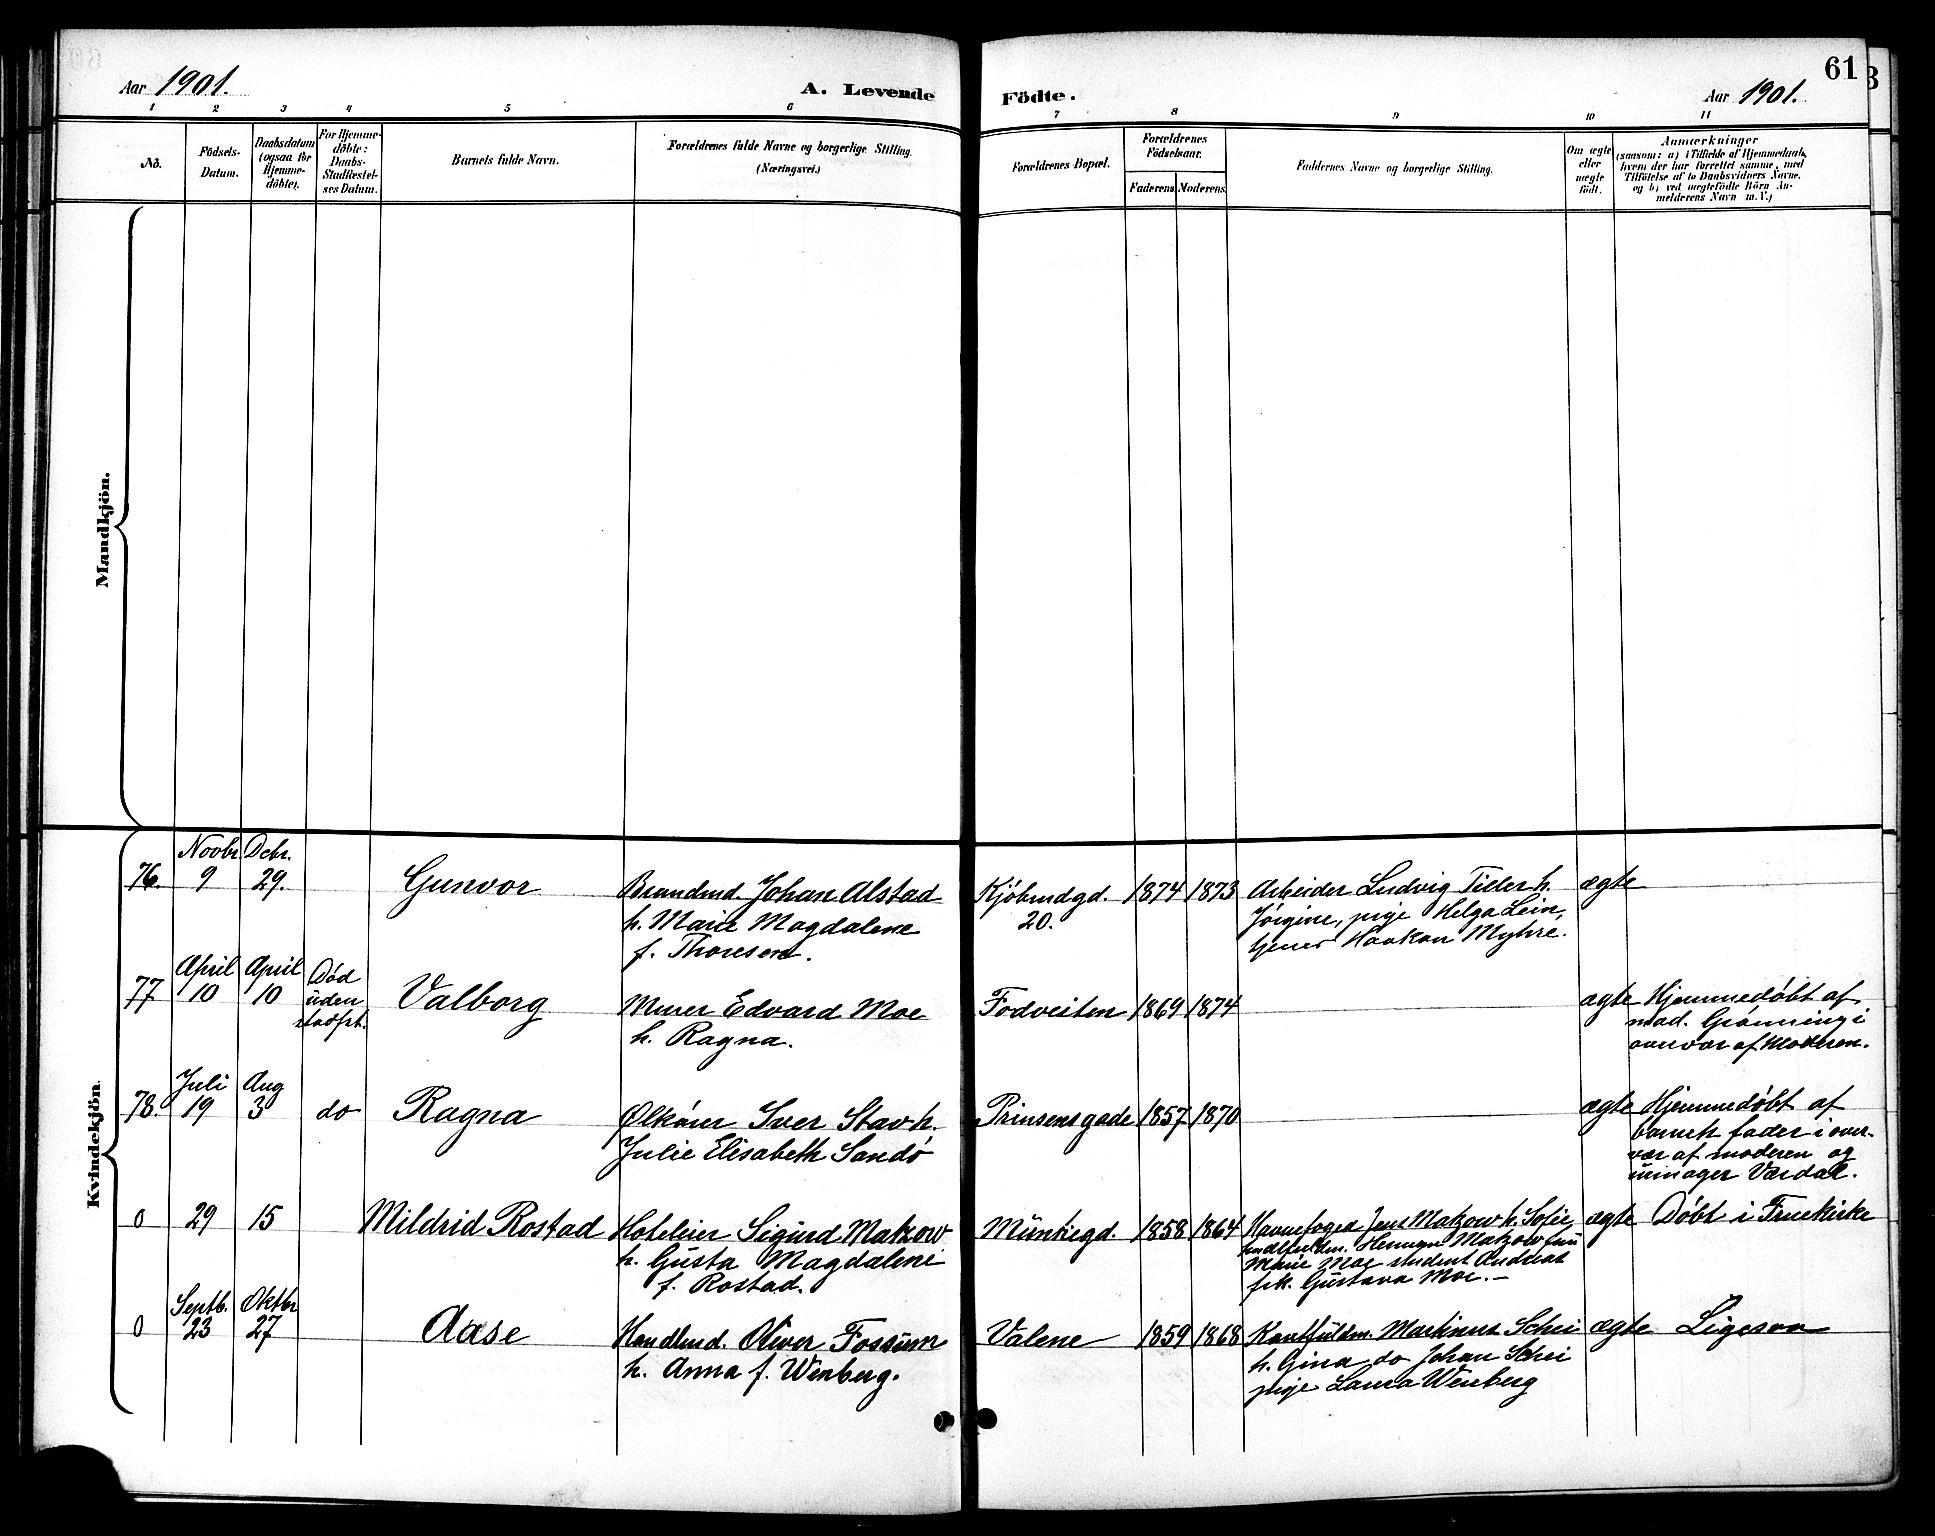 61
Aar 1901.
A. Levende
Födte.
Aar 1901.
1 2 3 4 5 6
7 8 9 10 11
No.
Födsels-
Datum.
Daabsdatum
(ogsaa for
Hjemme-
döbte).
For Hjemme-
döbte:
Daabs-
Stadfæstel-
ses Datum.
Barnets fulde Navn.
Forældrenes fulde Navne og borgerlige Stilling.
(Næringsvei.)
Forældrenes Bopæl.
Forældrenes
Födselsaar.
Faderens. Moderens.
Faddernes Navne og borgerlige Stilling.
Om ægte
eller
uægte
födt.
Anmærkninger
(saasom: a) i Tilfælde af Hjemmedaab,
hvem der har forrettet samme, med
Tilföielse af to Daabsvidners Navne,
og b) ved uægtefödte Börn An-
melderens Navn m. V.)
Mandkjön.
Kvindekjön.
76.
Novbr.
9
Debr.
29.
Gunvor
Brandmd. Johan Alstad
h. Marie Magdalene
f. Thoresen.
Kjöbmdgd.
20.
1874
1873
Arbeider Ludvig Tiller h.
Jörgine, pige Helga Lein,
tjener Haakon Myhre.
ægte
77
April
10
April
10
Död
uden
stadfst.
Valborg
Murer Edvard Moe
h. Ragna.
Fodveiten
1869
1874
ægte
Hjemmedöbt af
mad. Grönning i
overvær af Moderen.
78.
Juli
19
Aug
3
do
Ragna
Ølkörer Iver Stav h.
Julie Elisabeth Sandö
Prinsensgade
1857
1870
ægte
Hjemmedöbt af
barnets fader i over-
vær af moderen og
Værdal.
0
29
15
Mildrid Rostad
Hoteleier Sigurd Matzow
h. Gusta Magdalene
f. Rostad.
Munkegd.
1858
1864
Havnefoged Jens Matzow h. Sofie,
Matzow
Marie Moe student Andreas
frk. Gustava Moe.
ægte
Döbt i Fruekirke
0
Septb.
23
Oktbr
27
Aase
Handlmd. Oliver Fossum
h. Anna f. Wenberg.
Valene
1859
1868
Kontfuldm. Martinus Schei
h. Gina do Johan Schei
pige Laura Wenberg
ægte
Ligesaa